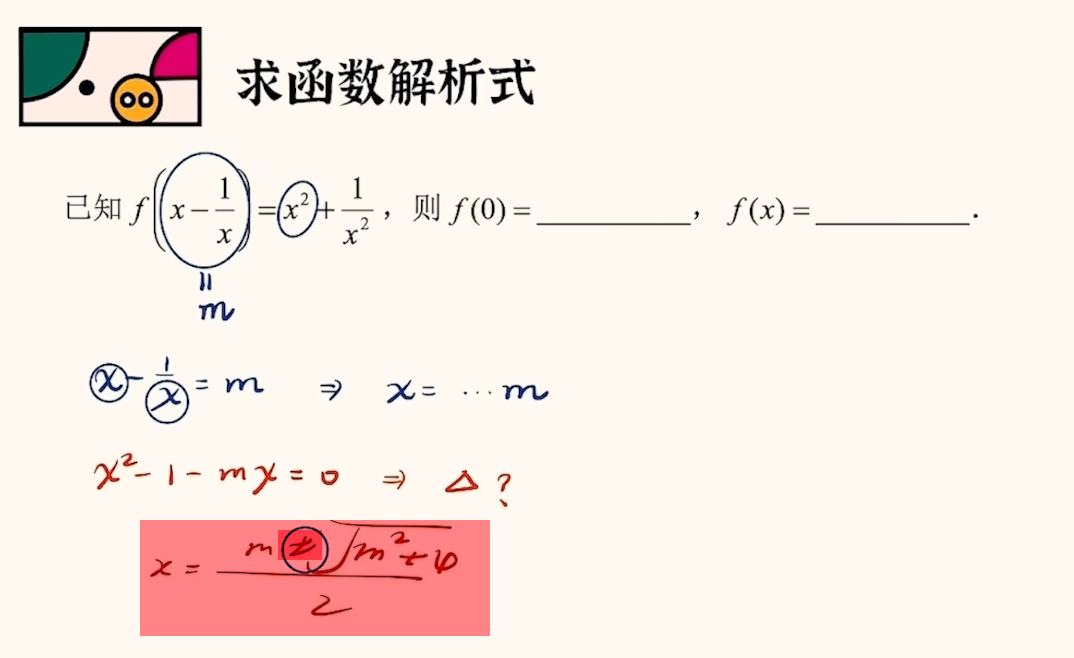 求函数解析式
已知 f(x - 1/x) = x² + 1/x², 则 f(0) = ________, f(x) = ________.
=
m
x - 1/x = m ⇒ x = …m
x² - 1 - mx = 0 ⇒ Δ ?
x = (m ± √(m² + 4))/2